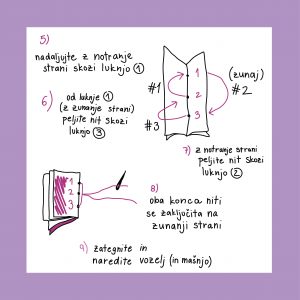 5)
nadaljujte z notranje
strani skozi luknjo 1
6)
od luknje 1
(z zunanje strani)
peljite nit skozi
luknjo 3
1
2
3
#1
#3
(zunaj)
#2
7) z notranje strani
peljite nit skozi
luknjo 2
1
2
3
8)
oba konca niti
se zaključita na
zunanji strani
9) zategnite in
naredite vozelj (in mašnjo)